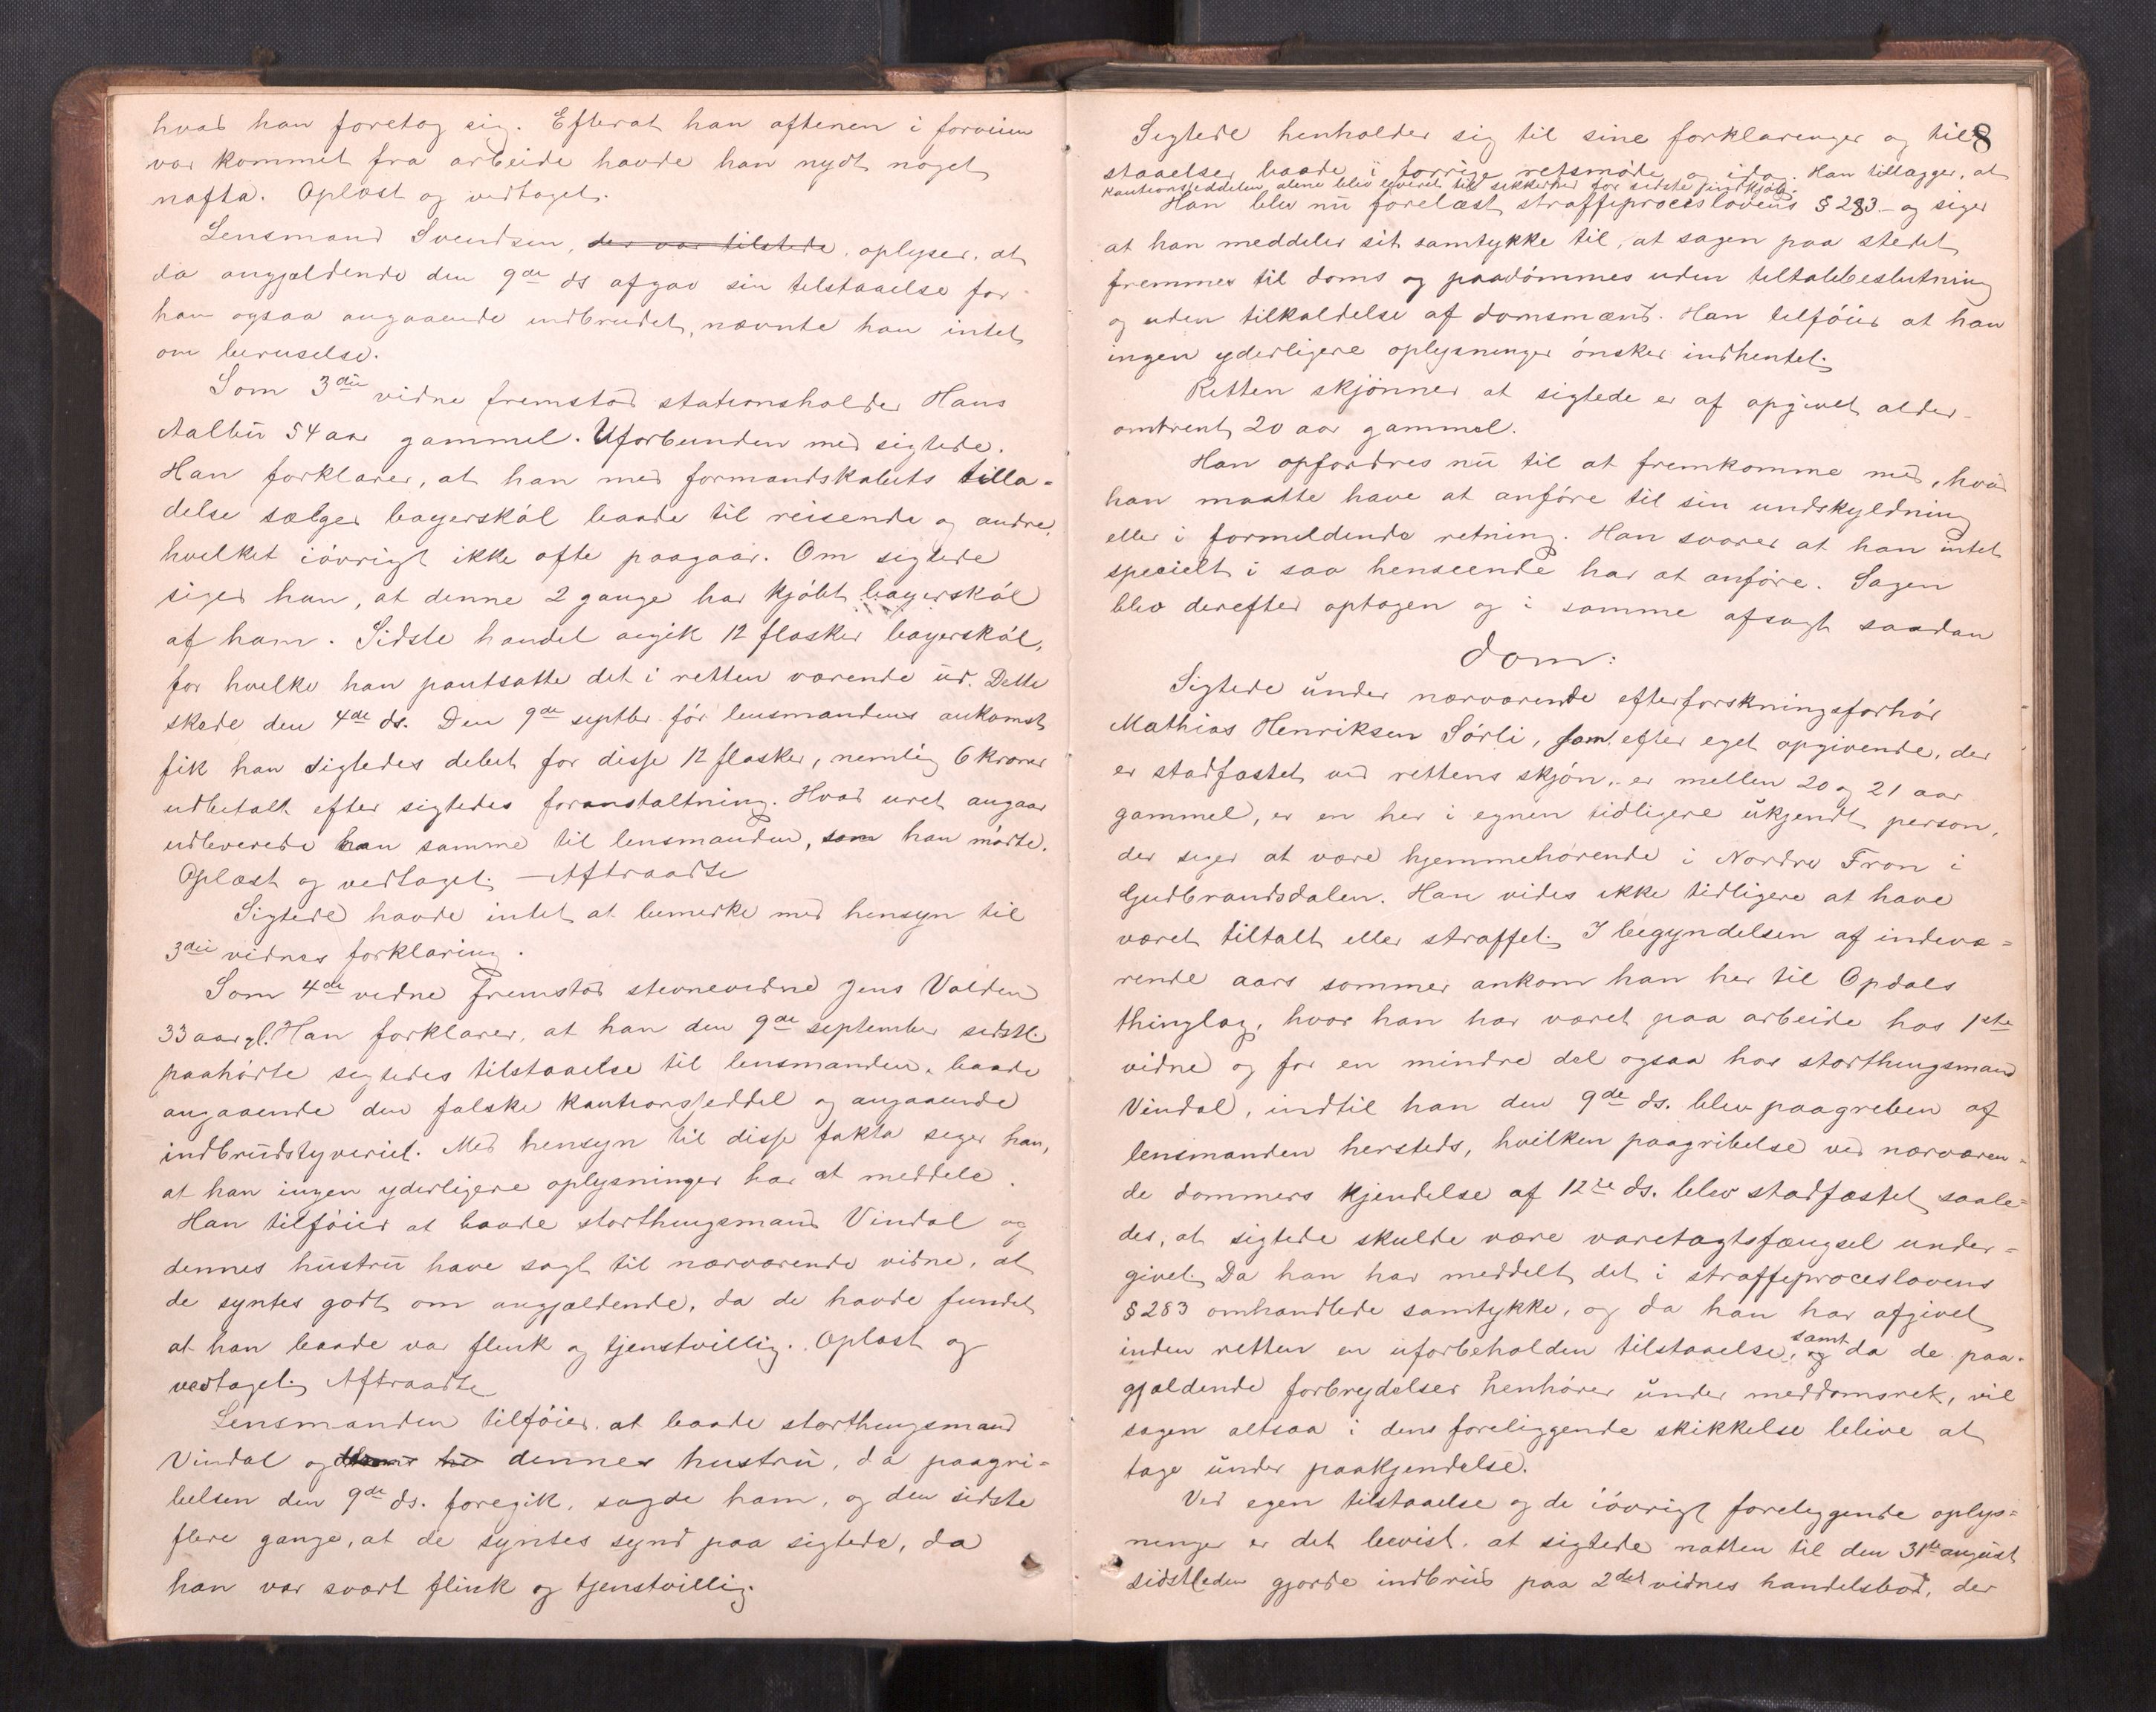 hvad han foretog sig. Efterat han aftenen i forveien
var kommet fra arbeide havde han nydt noget
nafta. Oplæst og vedtaget.
Lensmand Svendsen, der var tilstede, oplyser, at
da angjældende den 9de ds afgav sin tilstaaelse for
ham ogsaa angaaende indbrudet, nævnte han intet
om beruselse.
Som 3die vidne fremstod stationsholder Hans
Aalbu 54 aar gammel. Uforbunden med sigtede.
Han forklarer, at han med formandskabets tilla-
delse sælger bayerskøl baade til reisende og andre,
hvilket iøvrigt ikke ofte paagaar. Om sigtede
siger han, at denne 2 gange har kjøbt bayerskøl
af ham. Sidste handel angik 12 flasker bayerskøl,
for hvilke han pantsatte det i retten værende ur. Dette
skede den 4de ds. Den 9de septbr før lensmandens ankomst
fik han sigtedes debet for disse 12 flasker, nemlig 6 kroner
udbetalt efter sigtedes foranstaltning. Hvad uret angaar
udleverede han samme til lensmanden, som han mødte.
Oplæst og vedtaget. – Aftraadte
Sigtede havde intet at bemerke med hensyn til
3die vidnes forklaring.
Som 4de vidne fremstod stevnevidne Jens Volden
33 aar gl. Han forklarer, at han den 9de september sidstl.
paahørte sigtedes tilstaaelse til lensmanden, baade
angaaende den falske kautionsseddel og angaaende
indbrudstyveriet. Med hensyn til disse fakta siger han,
at han ingen yderligere oplysninger har at meddele.
Han tilføier at baade storthingsmand Vindal og
dennes hustru have sagt til nærværende vidne, at
de syntes godt om angjældende, da de havde fundet
at han baade var flink og tjenstvillig. Oplæst og
vedtaget. Aftraadte
Lensmanden tilføier, at baade storthingsmand
Vindal og dennes hustru, da paagri-
belsen den 9de ds. foregik, sagde ham, og den sidste
flere gange, at de syntes synd paa sigtede, da
han var svært flink og tjenstvillig.
8
Sigtede henholder sig til sine forklaringer og til-
staaelser baade i forrige retsmøde og idag. Han tillægger, at
kautionsseddelen alene blev leveret til sikkerhed for sidste indkjøb.
Han blev nu forelæst straffeproceslovens § 283 – og siger
at han meddeler sit samtykke til, at sagen paa stedet
fremmes til doms og paadømmes uden tiltalebeslutning
og uden tilkaldelse af domsmænd. Han tilføier at han
ingen yderligere oplysninger ønsker indhentet.
Retten skjønner at sigtede er af opgivet alder –
omtrent 20 aar gammel.
Han opfordres nu til at fremkomme med, hvad
han maatte have at anføre til sin undskyldning
eller i formildende retning. Han svarer at han intet
specielt i saa henseende har at anføre. Sagen
blev derefter optagen og i samme afsagt saadan
Dom:
Sigtede under nærværende efterforskningsforhør
Mathias Henriksen Sørli, som efter eget opgivende, der
er stadfæstet ved rettens skjøn, er mellen 20 og 21 aar
gammel, er en her i egnen tidligere ukjendt person,
der siger at være hjemmehørende i Nordre Fron i
Gudbrandsdalen. Han vides ikke tidligere at have
været tiltalt eller straffet. I begyndelsen af indevæ-
rende aars sommer ankom han her til Opdals
thinglag, hvor han har været paa arbeide hos 1ste
vidne og for en mindre del ogsaa hos storthingsmand
Vindal, indtil han den 9de ds. blev paagreben af
lensmanden hersteds, hvilken paagribelse ved nærværen-
de dommers kjendelse af 12te ds. blev stadfæstet saale-
des, at sigtede skulde være varetægtsfængsel under-
givet. Da han har meddelt det i straffeproceslovens
§ 283 omhandlede samtykke, og da han har afgivet
inden retten en uforbeholden tilstaaelse, og samt da de paa-
gjældende forbrydelser henhører under meddomsret, vil
sagen altsaa i dens foreliggende skikkelse blive at
tage under paakjendelse.
Ved egen tilstaaelse og de iøvrigt foreliggende oplys-
ninger er det bevist, at sigtede natten til den 31te august
sidstleden gjorde indbrud paa 2det vidnes handelsbod, der